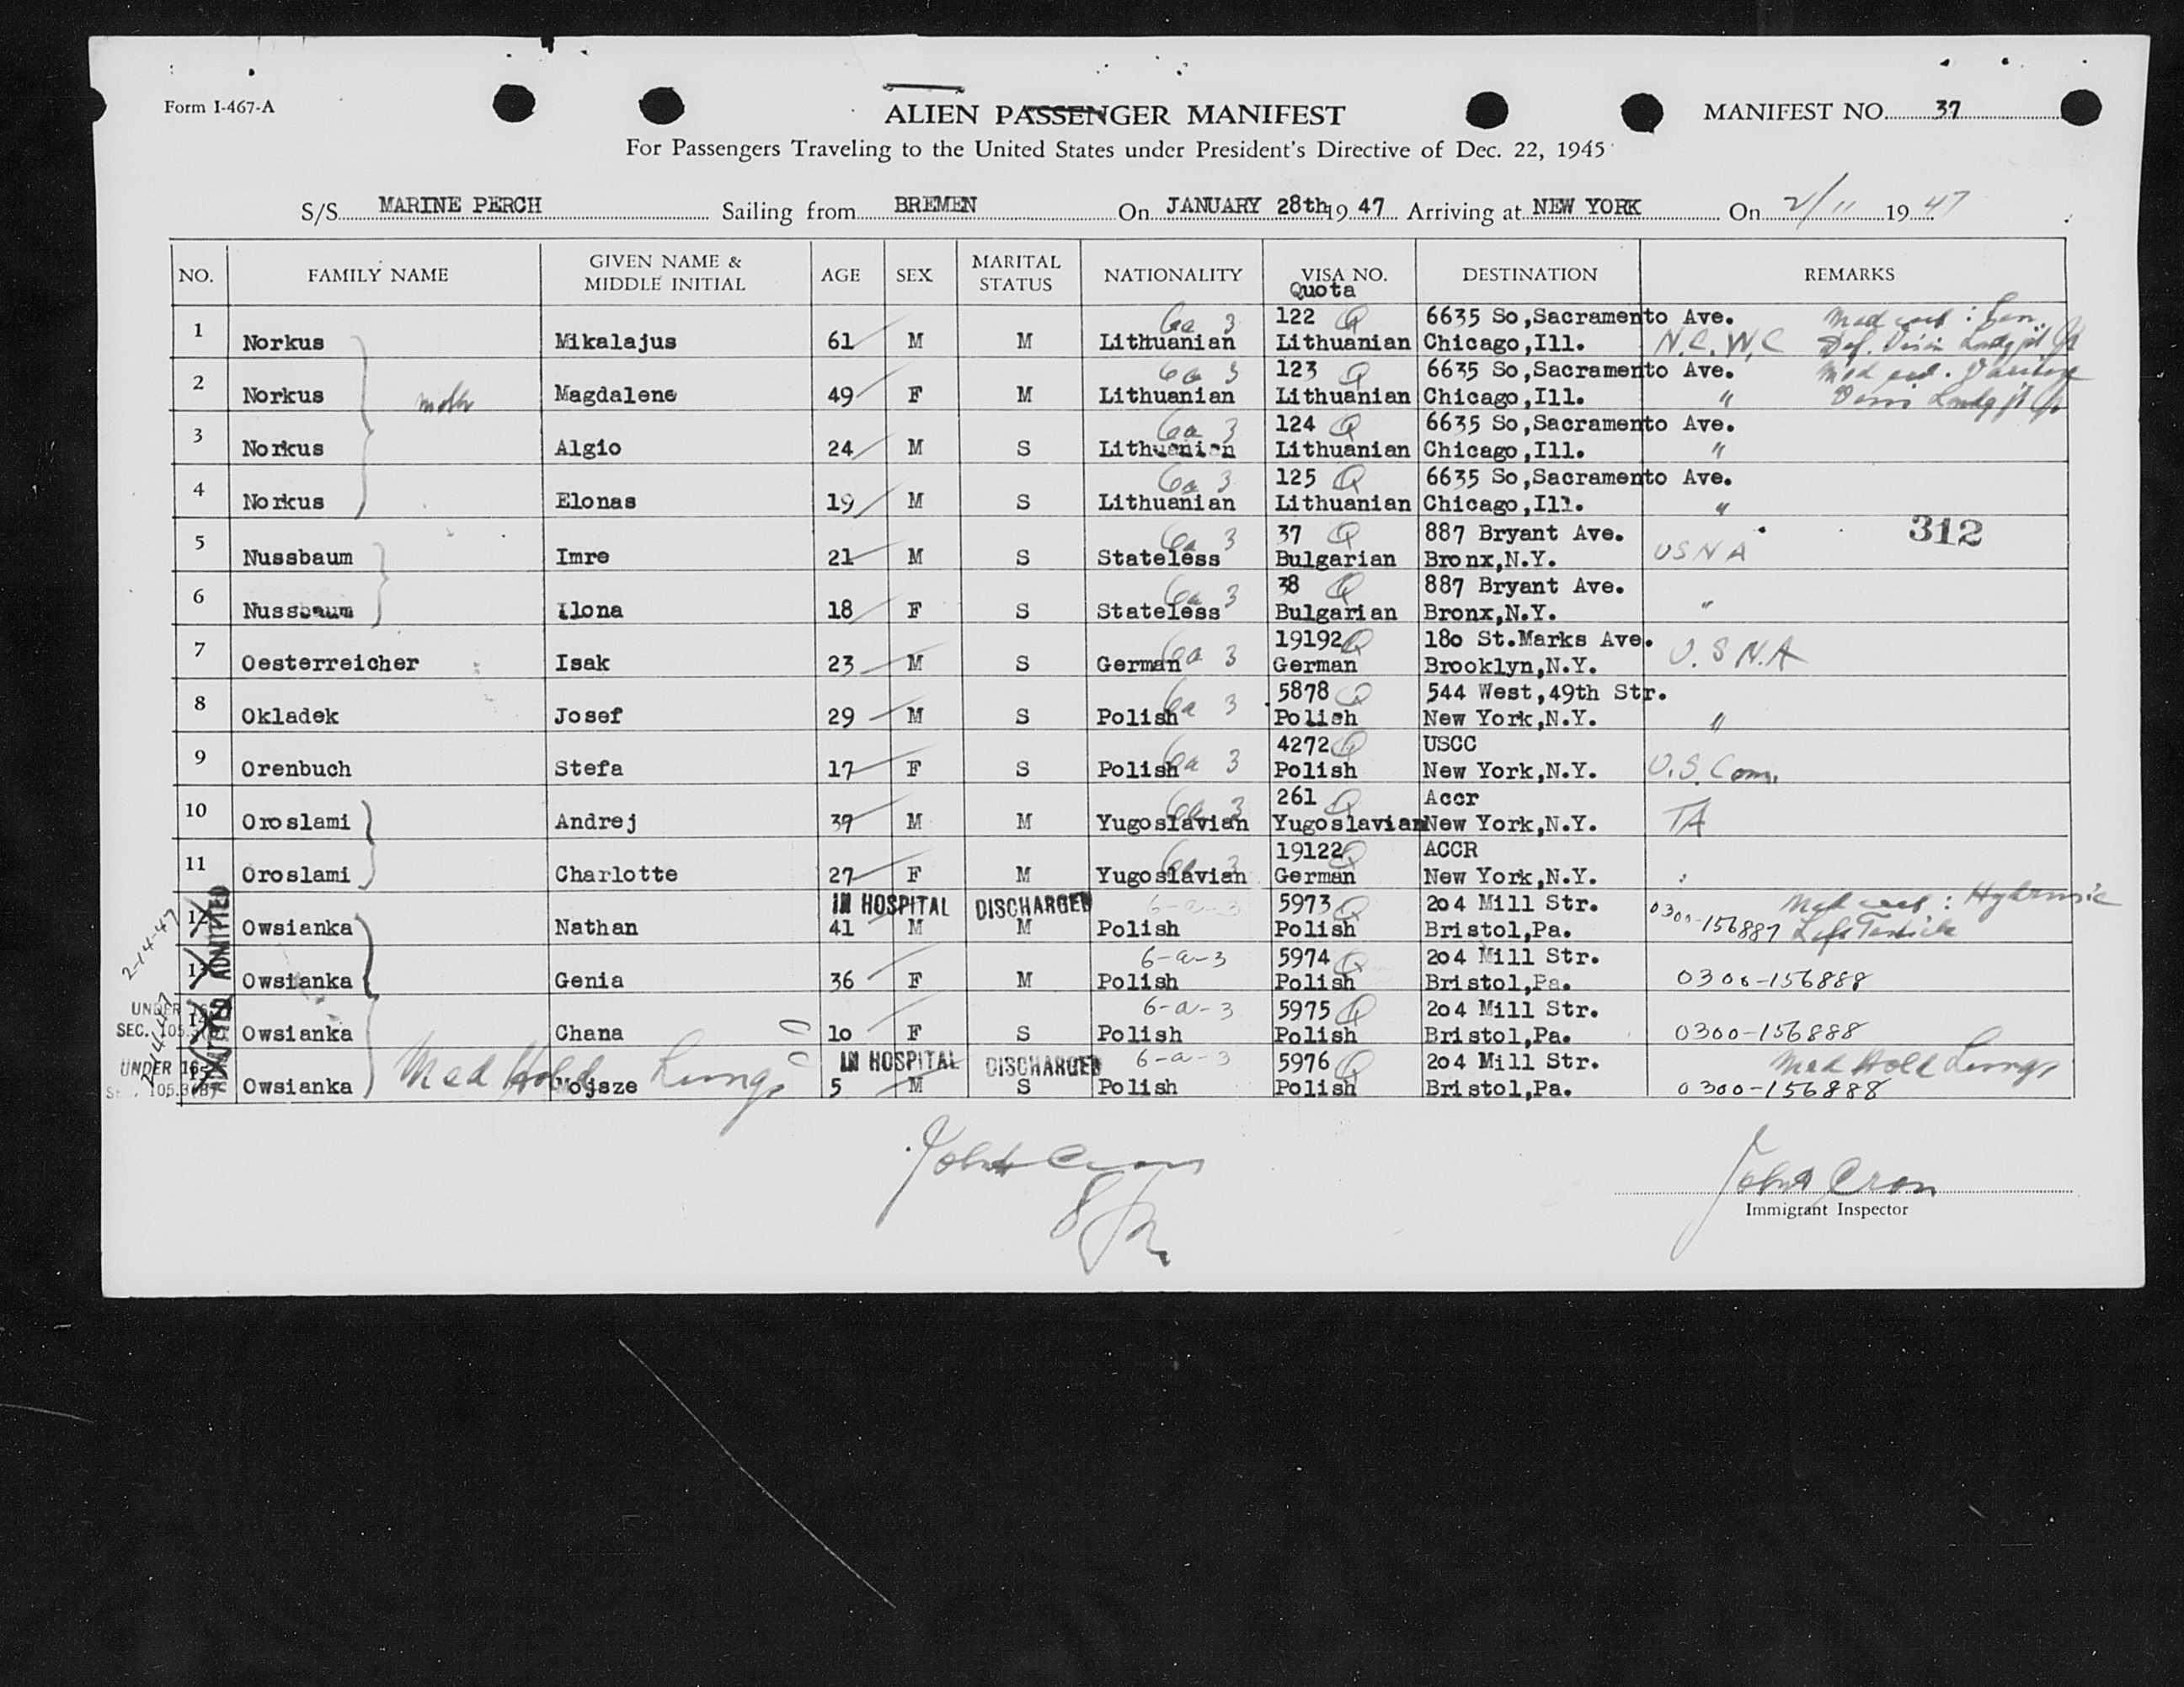 Form I-467-A
ALIEN PASSENGER MANIFEST
MANIFEST NO. 37
For Passengers Traveling to the United States under President's Directive of Dec. 22, 1945
S/S MARINE PERCH Sailing from BREMEN On JANUARY 28th 19 47 Arriving at NEW YORK On 2/11 19 47
NO. FAMILY NAME GIVEN NAME & MIDDLE INITIAL AGE SEX MARITAL STATUS NATIONALITY VISA NO. Quota DESTINATION REMARKS
6a 3 122 Q 6635 So,Sacramento Ave. Med cert :
1 Norkus Mikalajus 61 M M Lithuanian Lithuanian Chicago,Ill. N.C.W.C
6a 3 123 Q 6635 So,Sacramento Ave.
2 Norkus Magdalene 49 F M Lithuanian Lithuanian Chicago,Ill. "
6a 3 124 Q 6635 So,Sacramento Ave.
3 Norkus Algio 24 M S Lithuanian Lithuanian Chicago,Ill. "
6a 3 125 Q 6635 So,Sacramento Ave.
4 Norkus Elonas 19 M S Lithuanian Lithuanian Chicago,Ill. "
6a 3 37 Q 887 Bryant Ave. 312
5 Nussbaum Imre 21 M S Stateless Bulgarian Bronx,N.Y. USNA
6a 3 38 Q 887 Bryant Ave.
6 Nussbaum Ilona 18 F S Stateless Bulgarian Bronx,N.Y. "
6a 3 19192 Q 180 St.Marks Ave.
7 Oesterreicher Isak 23 M S German German Brooklyn,N.Y. U.S.N.A
6a 3 5878 Q 544 West,49th Str.
8 Okladek Josef 29 M S Polish Polish New York,N.Y. "
6a 3 4272 Q USCC
9 Orenbuch Stefa 17 F S Polish Polish New York,N.Y. U.S. Com.
6a 3 261 Q Accr
10 Oroslami Andrej 39 M M Yugoslavian Yugoslavian New York,N.Y. TA
6a 3 19122 Q ACCR
11 Oroslami Charlotte 27 F M Yugoslavian German New York,N.Y.
IN HOSPITAL DISCHARGED 6-a-3 5973 Q 204 Mill Str. Med cert :
12 Owsianka Nathan 41 M M Polish Polish Bristol,Pa. 0300-156887 Left Testicle
6-a-3 5974 Q 204 Mill Str.
13 Owsianka Genia 36 F M Polish Polish Bristol,Pa. 0300-156888
6-a-3 5975 Q 204 Mill Str.
14 Owsianka Chana 10 F S Polish Polish Bristol,Pa. 0300-156888
IN HOSPITAL DISCHARGED 6-a-3 5976 Q 204 Mill Str. Med Hold Lungs
15 Owsianka Med Hold Lungs Mojsze 5 M S Polish Polish Bristol,Pa. 0300-156888
2-14-47
ADMITTED
UNDER 16
SEC. 105.3(B)
2-14-47
ADMITTED
UNDER 16
105.3(B)
John Cron
John Cron
Immigrant Inspector